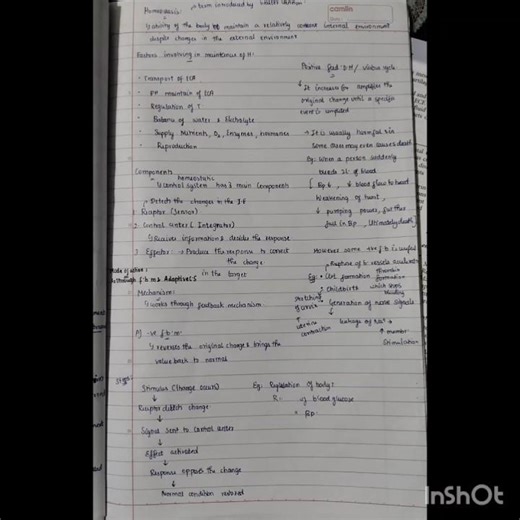 Homeostasis: term introduced by Walter
camlin
↳ ability of the body to maintain a relatively constant internal environment
despite changes in the external environment
Factors involving in maintenance of H:
· Transport of ECF
· PH maintain of ECF
· Regulation of T
· Balance of water & Electrolyte
· Supply Nutrients, O2, Enzymes, Hormones
· Reproduction
Components
homeostatic
↳ Control system has 3 main components
↳ Detects the changes in the I.E
1. Receptor (Sensor)
2. Control center (Integrator)
↳ Receives information & decides the response
3. Effector → Produce the response to correct
the change
in the target
Mode of action:
through f.b ms Adaptive C.S
Mechanism:
↳ works through feedback mechanism
A) -ve f.b.m
↳ reverses the original changes & brings the
value back to normal
Steps:
Stimulus (Change occurs)
↓
Receptor detects change
↓
Signal sent to control center
↓
Effect activated
↓
Response opposes the change
↓
Normal condition restored
Eg: Regulation of body T
R- of blood glucose
" Bp.
Positive feed B.M / Vicious cycle
↓ It increases or amplifies the
original change until a specific
event is completed
→ It is usually harmful
Some cases may even causes death
Eg: When a person suddenly
bleeds 2L of blood
↓ Bp & ↓ blood flow to heart
Weakening of heart,
↓ pumping power, further
fall in Bp, Ultimately death
However some +ve f.b is useful
→ Rupture of b. vessels
Eg: • Clot formation
formation
which stops
bleeding
• Childbirth
stretching
of cervix
↑
uterine
contraction
• Generation of nerve signals
↓
leakage of Na+
Stimulation
InShOt